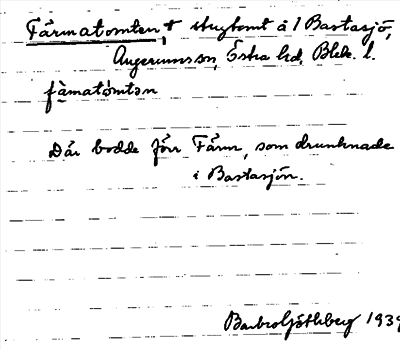 Färmatomten, † stugtomt å 1 Bastasjö,
Augerums sn, Östra hd, Blek. l.
fà̀matómtən
Där bodde förr Färm, som drunknade
i Bastasjön.
Barbro Götlberg 1939